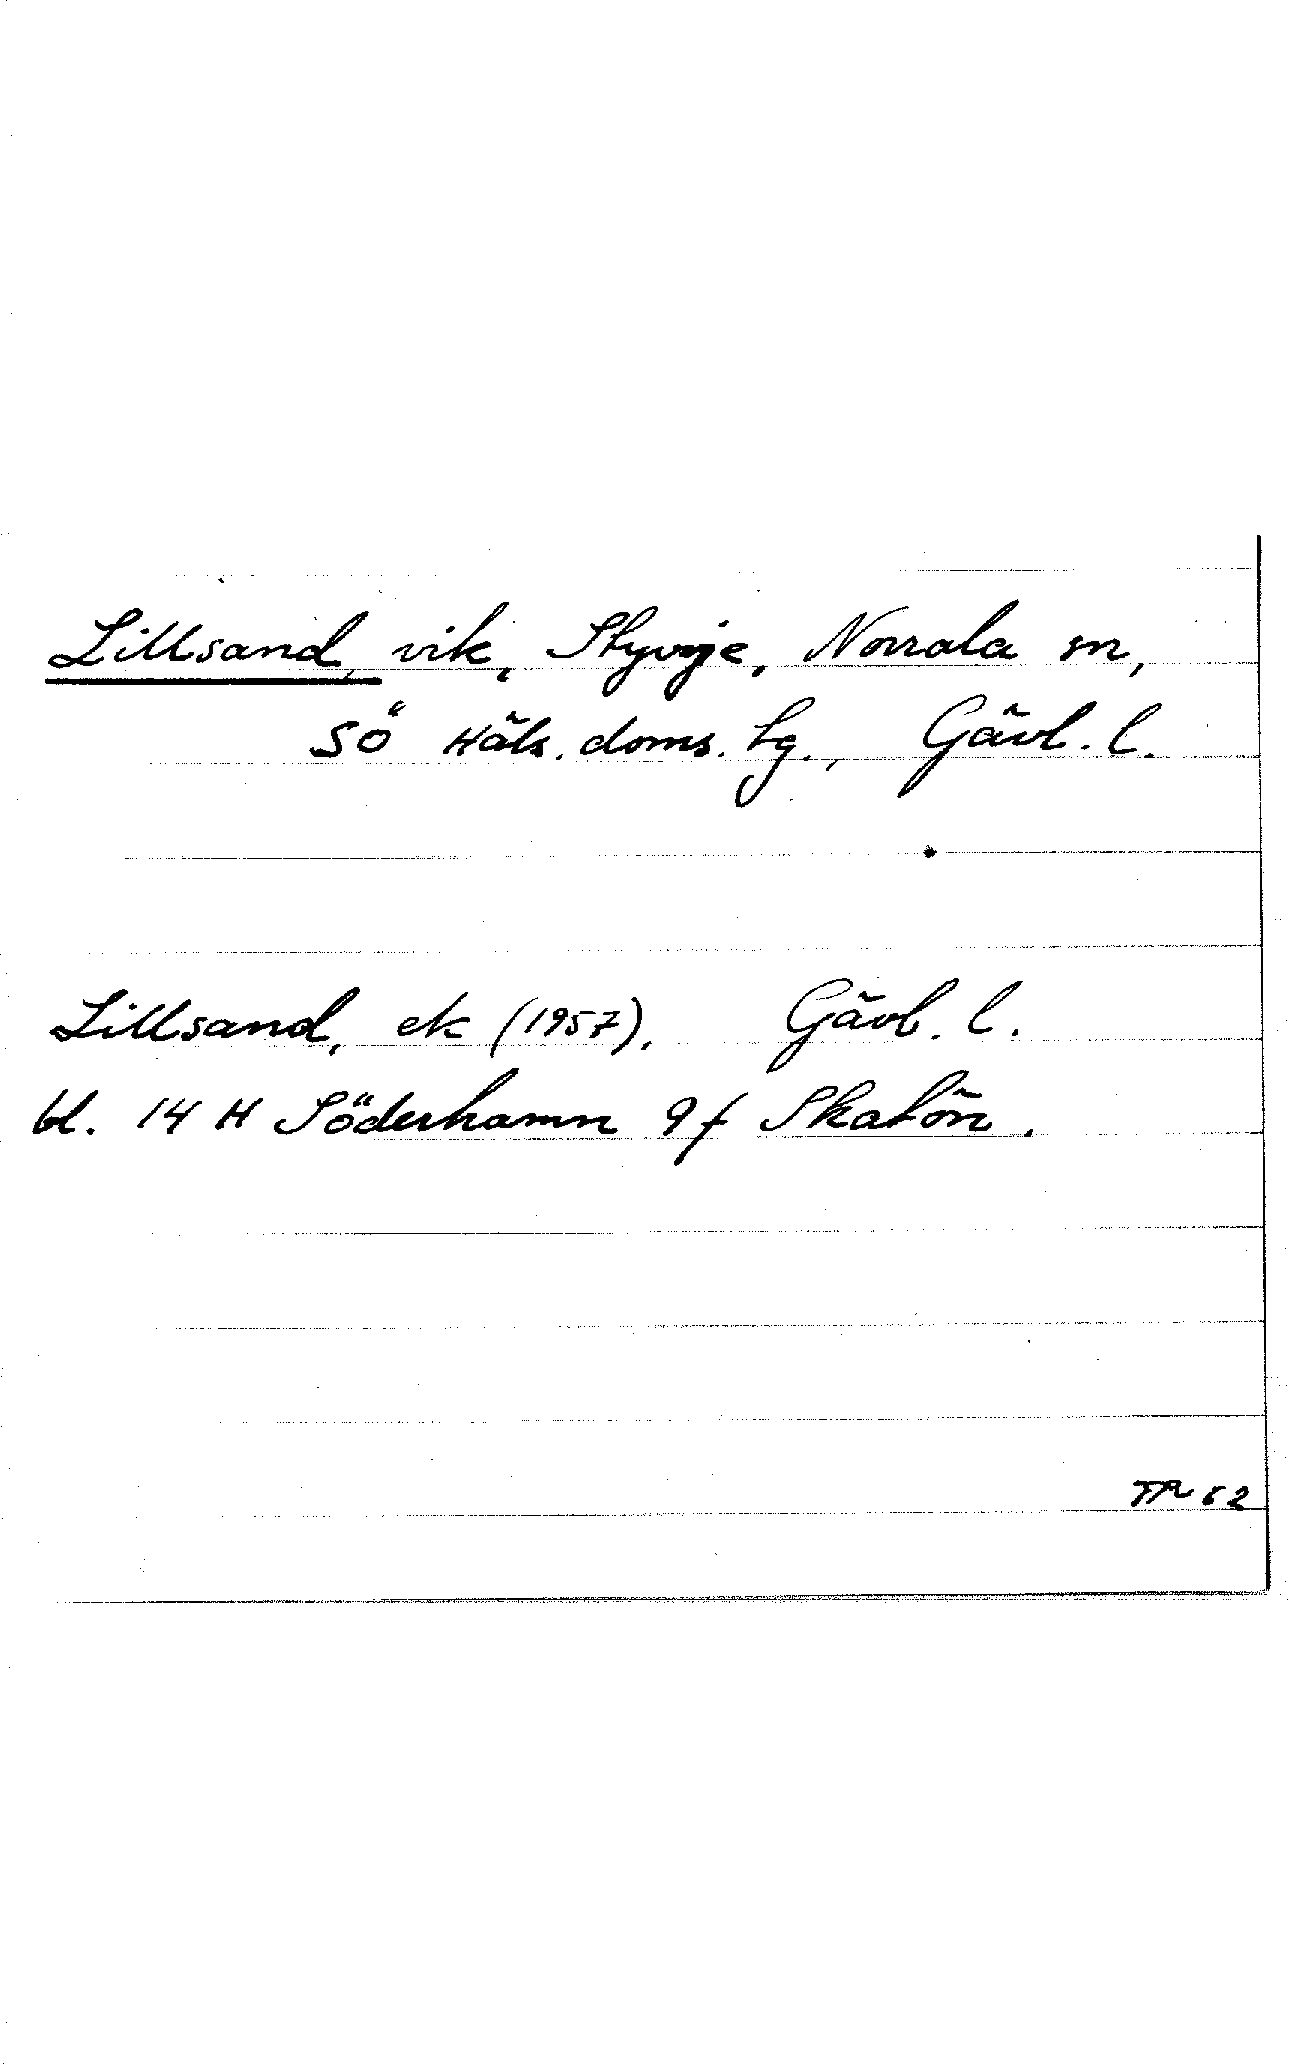 Lillsand, vik, Styvje, Norrala sn,
SÖ Häls. doms. tg., Gävl. l.
Lillsand, ek (1957), Gävb. l.
bl. 14 H Söderhamn 9f Skatön.
62